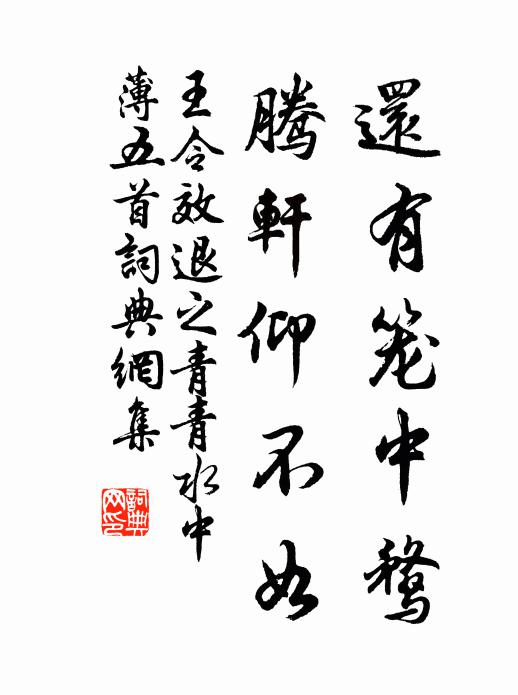 還有笼中鶩
騰軒仰不如
王令效退之青青水中
薄五首詞典網集
詞典网印